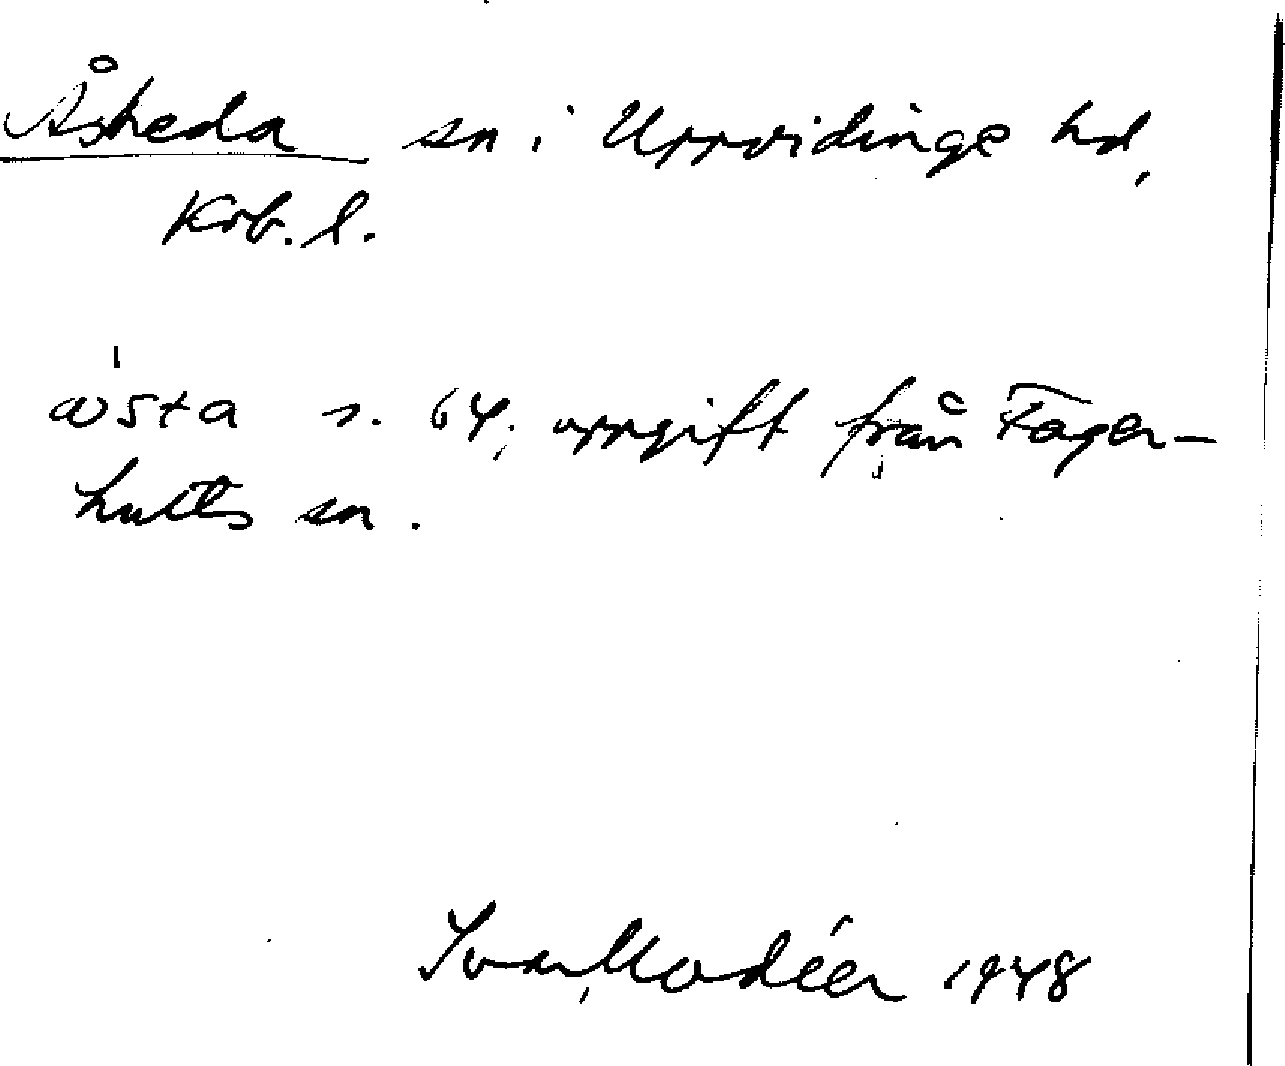 Åsheda sn i Uppvidinge hd,
Krb. l.
s. 64; uppgift från Fager-
hults sn.
Ivar Modéer 1948